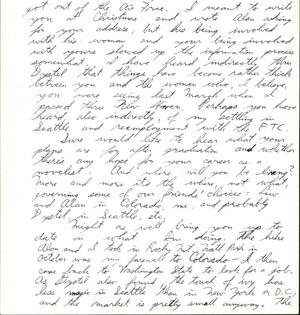 got out of the Air Force. I meant to write
you at Christmas and wrote Alan asking
for your address, but his being involved
with his woman and your being involved
with yours slowed up the information process
somewhat. I have heard indirectly thru
Dystel that things have become rather thick
between you and the woman who, I believe,
you were seeing last March when I
passed thru New Haven. Perhaps you have
heard, also indirectly, of my settling in
Seattle and reemployment with the FTC.
Sure would like to hear what your
plans are after graduation and whether
there's any hope for your career as a
novelist. And where will you be living?
More and more it's the where, not what,
governing some of our friends' choices -
and Alan in Colorado, me, and probably
Dystel in Seattle, etc.
Might as well bring you up to
date on what I'm doing. The hike
Alan and I took in Rocky Mt. Natl Park in
October was my farewell to Colorado - I then
came back to Washington State to look for a job.
As Dystel also found, the touch of ivy has
less magic in Seattle than in New York or D.C.,
and the market is pretty small anyway. The